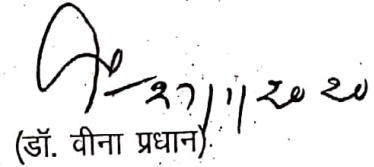 27/1/2020
(डॉ. वीना प्रधान)